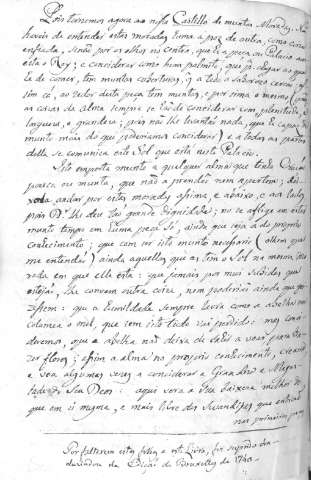 Pois tornemos agora ao nosso Castillo de muntas Moradas. Não
haveis de entender estas moradas huma apoz de outra como coiza
enfiada, senão por os olhos no centro, que he a peça ou Palacio aonde
está o Rey; e considerar como hum palmito, que p.ª chegar ao que
he de comer, tem muntas coberturas, q a tudo o saboroso cercão; as-
sim cá, ao redor desta peça tem muntas, e por sima o mesmo (porque
as cousas da alma sempre se hão de considerar com plenitude,
largueza, e grandeza; pois não lhe levantão nada, que he capaz de
munto mais do que poderiamos considerar) e a todas as partes
della se comunica este Sol que está neste Palacio.
Isto importa munto a qualquer alma que tenha Oração
pouca ou munta, que não a prendão nem apertem; dei-
xada andar por estas moradas assima, e abaixo, e aos lados
pois D.s lhe deu tão grande dignidade; no se aflija em estar
munto tempo em huma peça só, ainda que seja a do proprio
conhecimento; que com ser isto munto necessario (olhem que
me entendão) ainda aquellas que as tem o Sol na mesma mo-
rada em que elle está: que jamais por mui subidas que
estejão, lhe convem outra coiza, nem poderião ainda que qui-
zessem: que a humildade sempre lavra como a abelha na
colmea o mel, que sem isto tudo vai perdido: mas consi-
deremos, que a abelha não deixa de sahir a voar para tra-
zer flores; assim a alma no proprio conhecimento, creame
e voe algumas vezes a considerar a Grandeza e Mages-
tade de seu Deos: aqui verá a sua baixeza melhor do
que em si mesma, e mais livre das Sevandijas que entrão
nas primeiras peças
Por faltarem estas folhas a este Livro, foi suprido da
de Bruxellas de 1740.